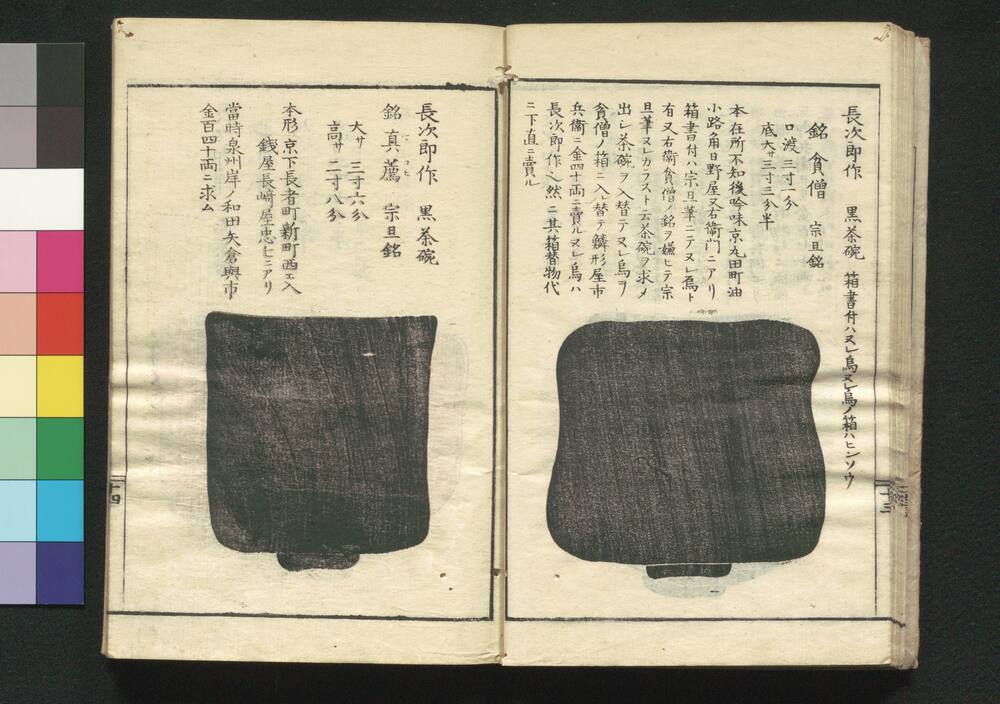 長次郎作　黒茶碗　箱書付ハヌレ烏ヌレ烏ノ箱ハヒンソウ
銘　貧僧　宗旦銘
口渡三寸一分
底大サ三寸三分半
本在所不知後吟味京丸田町油
小路角日野屋又右衛門ニアリ
箱書付ハ宗旦筆ニテヌレ烏ト
有又右衛貧僧ノ銘ヲ嫌ヒテ宗
旦筆ヌレカラスト云茶碗ヲ求メ
出シ茶碗ヲ入替テヌレ烏ヲ
貧僧ノ箱ニ入替テ鱗形屋市
兵衛ニ金四十両ニ賣ルヌレ烏ハ
長次郎作也然ニ其箱替物代
ニ下直ニ賣ル
十三
長次郎作　黒茶碗
銘　真薦　宗旦銘
大サ　三寸六分
高サ　二寸八分
本形京下長者町新町西エ入
銭屋長﨑屋忠七ニアリ
當時泉州岸ノ和田矢倉與市
金百四十両ニ求ム
十四